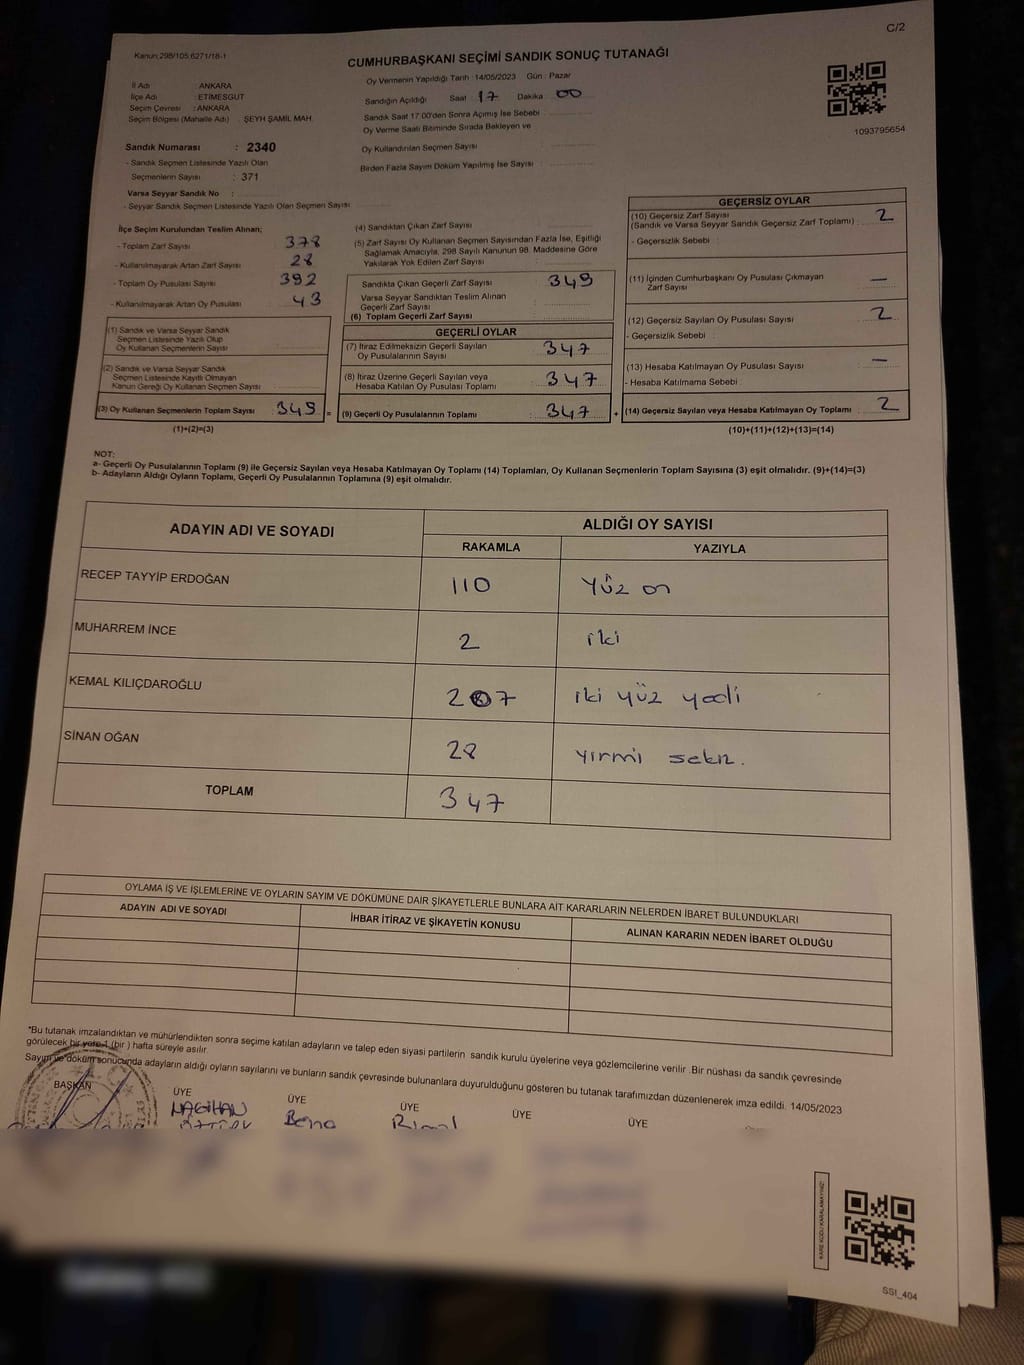 C/2
Kanun:298/105;6271/18-1
CUMHURBAŞKANI SEÇİMİ SANDIK SONUÇ TUTANAĞI
İl Adı : ANKARA
İlçe Adı : ETİMESGUT
Seçim Çevresi : ANKARA
Seçim Bölgesi (Mahalle Adı) : ŞEYH ŞAMİL MAH.
Oy Vermenin Yapıldığı Tarih : 14/05/2023 Gün : Pazar
Sandığın Açıldığı Saat 17 Dakika 00
Sandık Saat 17:00'den Sonra Açılmış İse Sebebi :
Oy Verme Saati Bitiminde Sırada Bekleyen ve
Oy Kullandırılan Seçmen Sayısı :
Birden Fazla Sayım Döküm Yapılmış İse Sayısı :
1093795654
Sandık Numarası : 2340
- Sandık Seçmen Listesinde Yazılı Olan
Seçmenlerin Sayısı : 371
Varsa Seyyar Sandık No :
- Seyyar Sandık Seçmen Listesinde Yazılı Olan Seçmen Sayısı :
İlçe Seçim Kurulundan Teslim Alınan;
- Toplam Zarf Sayısı : 378
- Kullanılmayarak Artan Zarf Sayısı : 28
- Toplam Oy Pusulası Sayısı : 392
- Kullanılmayarak Artan Oy Pusulası : 43
(1) Sandık ve Varsa Seyyar Sandık
Seçmen Listesinde Yazılı Olup
Oy Kullanan Seçmenlerin Sayısı :
(2) Sandık ve Varsa Seyyar Sandık
Seçmen Listesinde Kayıtlı Olmayan
Kanun Gereği Oy Kullanan Seçmen Sayısı :
(3) Oy Kullanan Seçmenlerin Toplam Sayısı : 349 =
(1)+(2)=(3)
(4) Sandıktan Çıkan Zarf Sayısı :
(5) Zarf Sayısı Oy Kullanan Seçmen Sayısından Fazla İse, Eşitliği
Sağlamak Amacıyla, 298 Sayılı Kanunun 98. Maddesine Göre
Yakılarak Yok Edilen Zarf Sayısı :
Sandıkta Çıkan Geçerli Zarf Sayısı : 349
Varsa Seyyar Sandıktan Teslim Alınan
Geçerli Zarf Sayısı :
(6) Toplam Geçerli Zarf Sayısı :
GEÇERLİ OYLAR
(7) İtiraz Edilmeksizin Geçerli Sayılan
Oy Pusulalarının Sayısı : 347
(8) İtiraz Üzerine Geçerli Sayılan veya
Hesaba Katılan Oy Pusulası Toplamı : 347
(9) Geçerli Oy Pusulalarının Toplamı : 347 +
GEÇERSİZ OYLAR
(10) Geçersiz Zarf Sayısı
(Sandık ve Varsa Seyyar Sandık Geçersiz Zarf Toplamı) : 2
- Geçersizlik Sebebi :
(11) İçinden Cumhurbaşkanı Oy Pusulası Çıkmayan
Zarf Sayısı : —
(12) Geçersiz Sayılan Oy Pusulası Sayısı : 2
- Geçersizlik Sebebi :
(13) Hesaba Katılmayan Oy Pusulası Sayısı : —
- Hesaba Katılmama Sebebi :
(14) Geçersiz Sayılan veya Hesaba Katılmayan Oy Toplamı : 2
(10)+(11)+(12)+(13)=(14)
NOT:
a- Geçerli Oy Pusulalarının Toplamı (9) ile Geçersiz Sayılan veya Hesaba Katılmayan Oy Toplamı (14) Toplamları, Oy Kullanan Seçmenlerin Toplam Sayısına (3) eşit olmalıdır. (9)+(14)=(3)
b- Adayların Aldığı Oyların Toplamı, Geçerli Oy Pusulalarının Toplamına (9) eşit olmalıdır.
ADAYIN ADI VE SOYADI ALDIĞI OY SAYISI
RAKAMLA YAZIYLA
RECEP TAYYİP ERDOĞAN 110 Yüz on
MUHARREM İNCE 2 iki
KEMAL KILIÇDAROĞLU 207 iki yüz yedi
SİNAN OĞAN 28 yirmi sekiz.
TOPLAM 347
OYLAMA İŞ VE İŞLEMLERİNE VE OYLARIN SAYIM VE DÖKÜMÜNE DAİR ŞİKAYETLERLE BUNLARA AİT KARARLARIN NELERDEN İBARET BULUNDUKLARI
ADAYIN ADI VE SOYADI İHBAR İTİRAZ VE ŞİKAYETİN KONUSU ALINAN KARARIN NEDEN İBARET OLDUĞU
*Bu tutanak imzalandıktan ve mühürlendikten sonra seçime katılan adayların ve talep eden siyasi partilerin sandık kurulu üyelerine veya gözlemcilerine verilir .Bir nüshası da sandık çevresinde
görülecek bir yere 1 (bir ) hafta süreyle asılır.
Sayım ve döküm sonucunda adayların aldığı oyların sayılarını ve bunların sandık çevresinde bulunanlara duyurulduğunu gösteren bu tutanak tarafımızdan düzenlenerek imza edildi. 14/05/2023
BAŞKAN ÜYE ÜYE ÜYE ÜYE ÜYE
NAGİHAN
KARE KODU KARALAMAYINIZ!
SSI_404